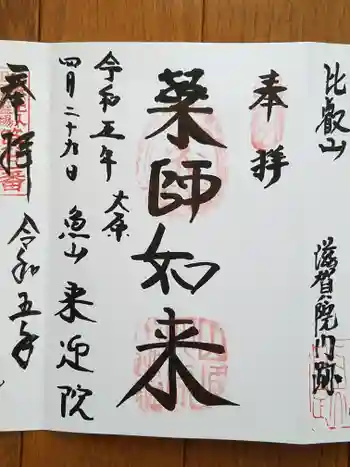 比叡山
滋賀院門跡
奉拝
薬師如来
大原
魚山 来迎院
令和五年
四月二十九日
奉拝
令和五年